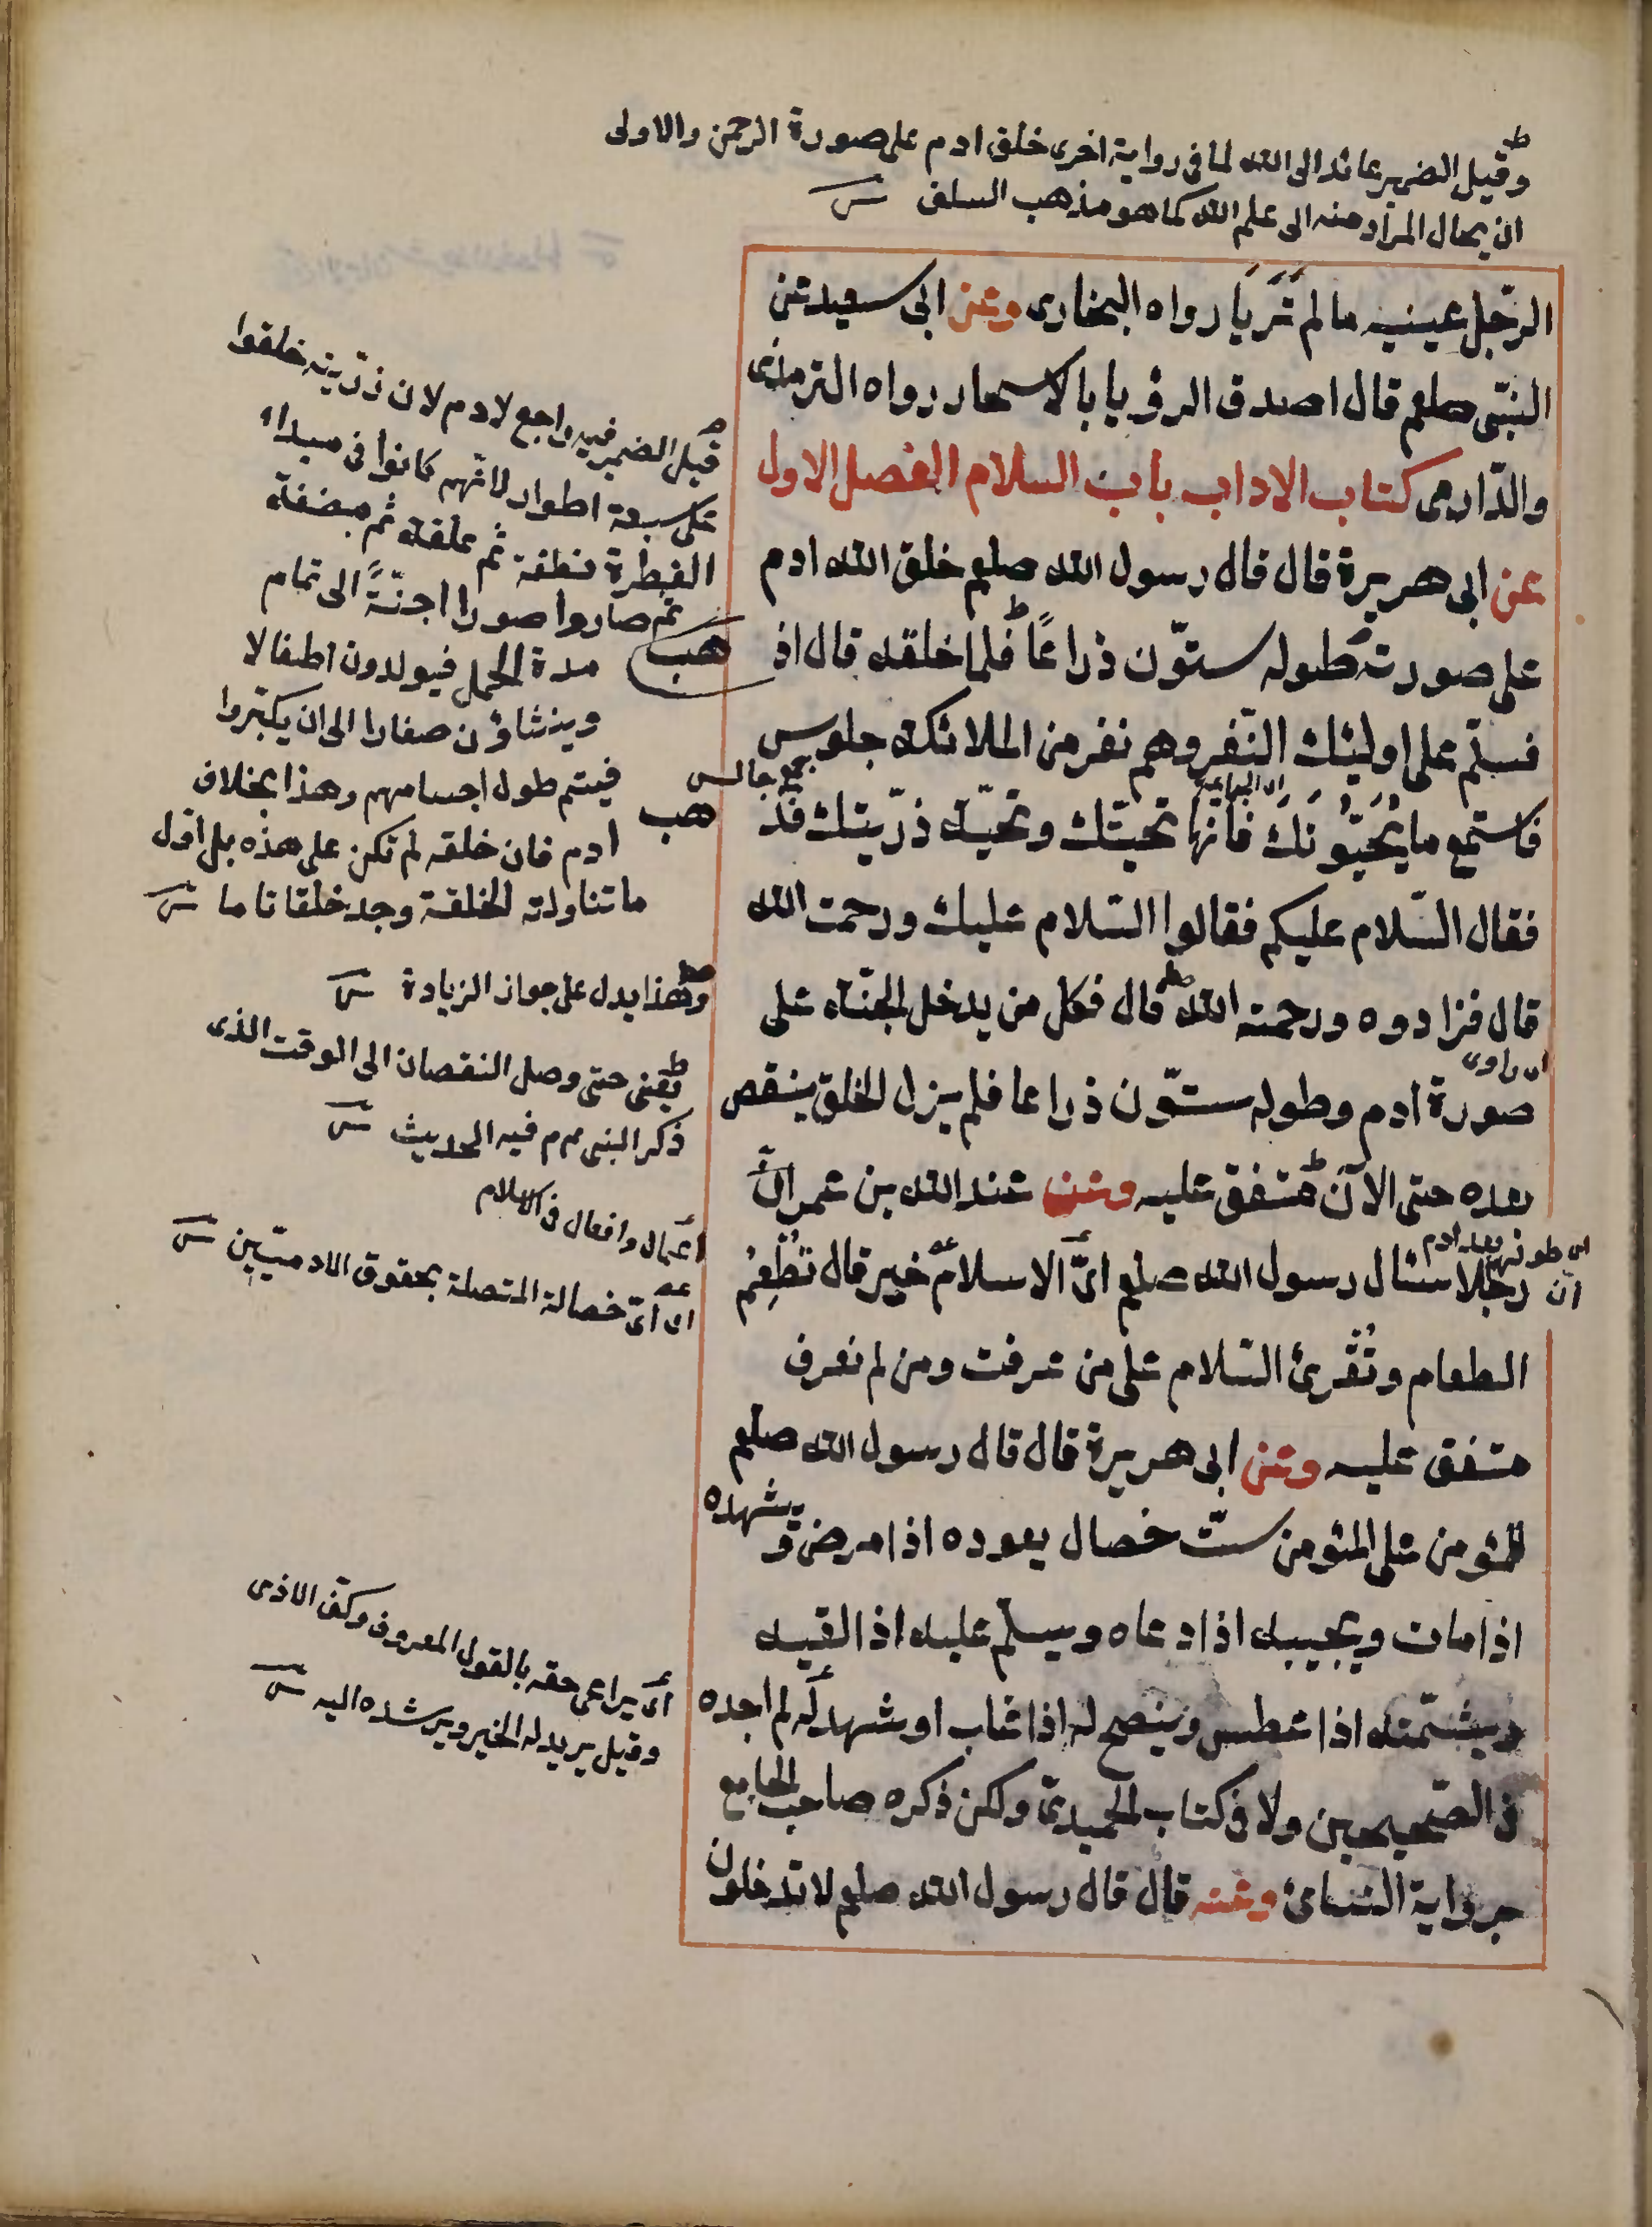 وقيل الضمير عائد الى الله لما فى رواية اخرى خلق ادم على صورة الرحمن والاولى
ان يحال المراد منه الى علم الله كما هو مذهب السلف
الرّجل عينيه ما لم تَرَيَا رواه البخارى وعن ابى سعيد عن
النبّى صلعم قال اصدق الرؤيا بالاسحار رواه الترمذى
والدّارمى كتاب الاداب باب السلام الفصل الاول
عن ابى هريرة قال قال رسول الله صلعم خلق الله ادم
على صورته طوله ستّون ذراعًا فلما خلقه قال اذ
هب
فسلّم على اولئك النّفر وهم نفر من الملائكة جلوس
جمع جالس
فاستمع ما يُحَيُّونَكَ فانّها تحيتّك وتحيّة ذرّيتك فذ
هب
فقال السّلام عليكم فقالوا السّلام عليك ورحمت الله
قال فزادوه ورحمته الله قال فكل من يدخل الجنّة على
اى راوى
صورة ادم وطوله ستّون ذراعا فلم يزل الخلق ينقص
بعده حتى الآن متفق عليه وعن عبد الله بن عمر
اى طولهم بعد ادم
انّ رجلا سئال رسول الله صلعم اىّ الاسلام خير قال تُطْعِمُ
الطعام وتُقْرِئ السّلام على من عرفت ومن لم تعرف
متفق عليه وعن ابى هريرة قال قال رسول الله صلعم
للمؤمن على المئومن ستّ خصال يعوده اذا مرض ويشهده
اذا مات ويجيبه اذا دعاه ويسلّم عليه اذا لقيه
ويشمّته اذا عطس وينصح له اذا غاب او شهد لم اجده
فى الصّحيحين ولا فى كتاب الحميدىّ ولكن ذكره صاحب الجامع
برواية النسائ وعنه قال قال رسول الله صلعم لا تدخلون
قيل الضمير فيه راجع لادم لان ذرّيته خلقوا
على سبعة اطوار لانّهم كانوا فى مبداء
الفطرة نطفة ثم علقة ثم مضغة
ثم صاروا صورا اجنّةً الى تمام
مدة الحمل فيولدون اطفالا
وينشاؤن صغارا الى ان يكبّروا
فيتم طول اجسامهم وهذا بخلاف
ادم فان خلقه لم تكن على هذه بل اول
ما تناولته الخلقة وجد خلقا تاما
وهذا يدل على جواز الزيادة
يعنى حتى وصل النقصان الى الوقت الذى
ذكر النبى م م فيه الحديث
اعمال وافعال فى الاسلام
اى اىّ خصالة المتصلة بحقوق الادميّين
اى يراعى حقه بالقول المعروف وكفّ الاذى
وقيل يريد له الخير ويرشده اليه